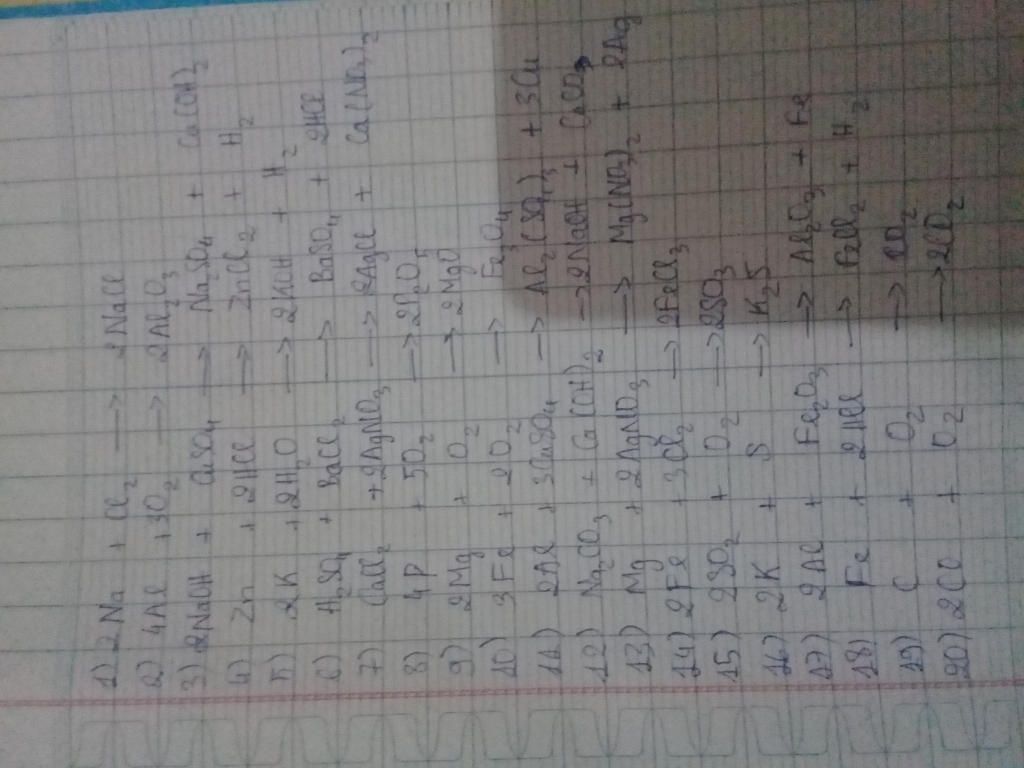 1) 2Na + Cl₂ → 2NaCl
2) 4Al + 3O₂ → 2Al₂O₃
3) 2NaOH + CuSO₄ → Na₂SO₄ + Cu(OH)₂
4) Zn + 2HCl → ZnCl₂ + H₂
5) 2K + 2H₂O → 2KOH + H₂
6) H₂SO₄ + BaCl₂ → BaSO₄ + 2HCl
7) CaCl₂ + 2AgNO₃ → 2AgCl + Ca(NO₃)₂
8) 4P + 5O₂ → 2P₂O₅
9) 2Mg + O₂ → 2MgO
10) 3Fe + 2O₂ → Fe₃O₄
11) 2Al + 3CuSO₄ → Al₂(SO₄)₃ + 3Cu
12) Na₂CO₃ + Ca(OH)₂ → 2NaOH + CaCO₃
13) Mg + 2AgNO₃ → Mg(NO₃)₂ + 2Ag
14) 2Fe + 3Cl₂ → 2FeCl₃
15) 2SO₂ + O₂ → 2SO₃
16) 2K + S → K₂S
17) 2Al + Fe₂O₃ → Al₂O₃ + Fe
18) Fe + 2HCl → FeCl₂ + H₂
19) C + O₂ → CO₂
20) 2CO + O₂ → 2CO₂